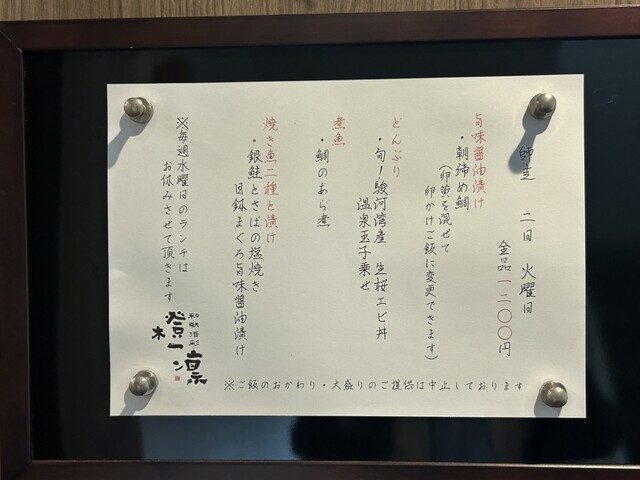 師走 二日 火曜日
全品一二〇〇円
旨味醤油漬け
・朝締め鯛
(卵黄を混ぜて
卵かけご飯に変更できます)
どんぶり
・旬!駿河湾産 生桜エビ丼
温泉玉子乗せ
煮魚
・鯛のあら煮
焼き魚二種と漬け
・銀鮭とさばの塩焼き
目鉢まぐろ旨味醤油漬け
※毎週水曜日のランチは
お休みさせて頂きます
登一凛
※ご飯のおかわり・大盛りのご提供は中止しております